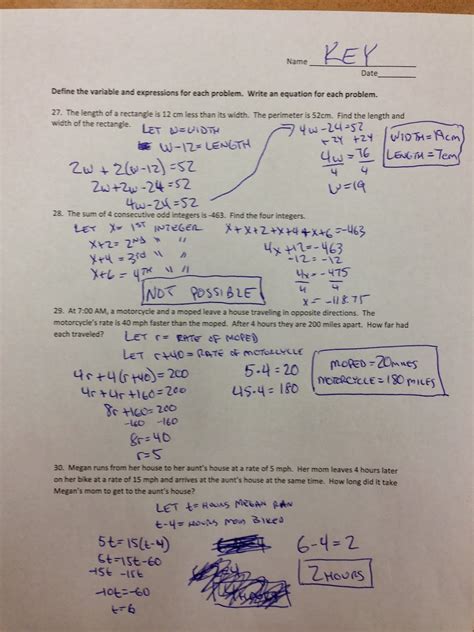 Name KEY
Date
Define the variable and expressions for each problem. Write an equation for each problem.
27. The length of a rectangle is 12 cm less than its width. The perimeter is 52cm. Find the length and
width of the rectangle.
LET W=WIDTH
W-12=LENGTH
2W + 2(W-12)=52
2W+2W-24=52
4W-24=52
4W-24=52
+24 +24
4W = 76
4 4
W=19
WIDTH=19cm
LENGTH=7cm
28. The sum of 4 consecutive odd integers is -463. Find the four integers.
LET X= 1ST INTEGER
X+2= 2ND " "
X+4= 3RD " "
X+6= 4TH " "
X+X+2+X+4+X+6=-463
4X+12=-463
-12 = -12
4X = -475
4 4
X=-118.75
NOT POSSIBLE
29. At 7:00 AM, a motorcycle and a moped leave a house traveling in opposite directions. The
motorcycle's rate is 40 mph faster than the moped. After 4 hours they are 200 miles apart. How far had
each traveled?
LET r= RATE OF MOPED
LET r+40= RATE OF MOTORCYCLE
4r+4(r+40)=200
4r+4r+160=200
8r+160=200
-160 -160
8r=40
r=5
5·4=20
45·4=180
MOPED=20MILES
MOTORCYCLE=180 MILES
30. Megan runs from her house to her aunt's house at a rate of 5 mph. Her mom leaves 4 hours later
on her bike at a rate of 15 mph and arrives at the aunt's house at the same time. How long did it take
Megan's mom to get to the aunt's house?
LET t= HOURS MEGAN RAN
t-4= HOURS MOM BIKED
5t=15(t-4)
5t=15t-60
-15t -15t
-10t=-60
t=6
6-4=2
2 HOURS